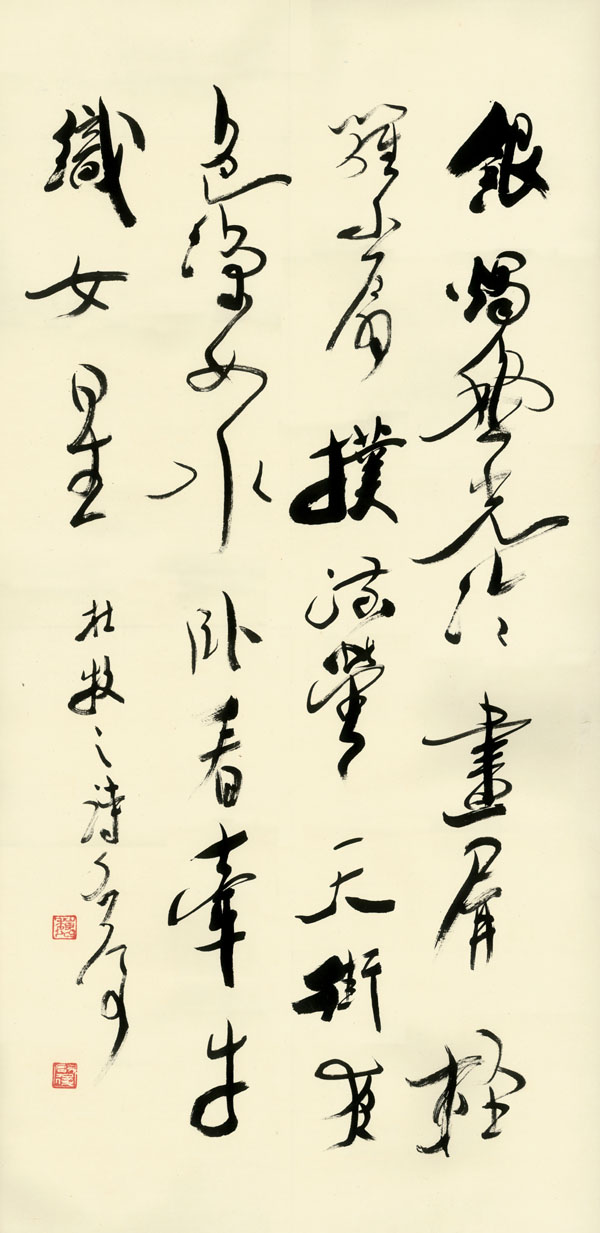 銀燭秋光冷畫屏輕
羅小扇撲流螢天街夜
色涼如水卧看牽牛
織女星
杜牧之詩